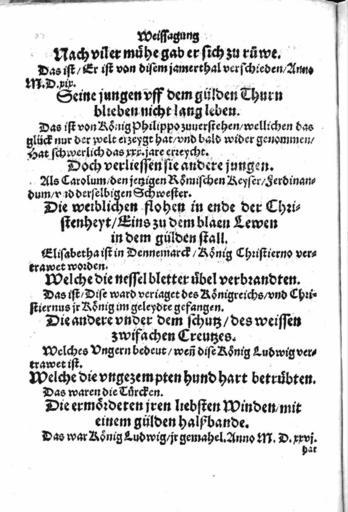 Weissagung
Nach viler mühe gab er sich zu růwe.
Das ist/ Er ist von disem jamerthal verschieden/ Anno
M.D.xix.
Seine jungen vff dem gülden Thurn
blieben nicht lang leben.
Das ist von König Philippo zuuerstehen/ wellichen das
glück nur der welt erzeygt hat/ vnd bald wider genommen/
Hat schwerlich das xxx. jare erreycht.
Doch verliessen sie andere jungen.
Als Carolum/ den jetzigen Römischen Keyser/ Ferdinan-
dum/ vnd derselbigen Schwester.
Die weiblichen flohen in ende der Chri-
stenheyt/ Eins zu dem blaen Lewen
in dem gülden stall.
Elisabetha ist in Dennemarck/ König Christierno ver-
trawet worden.
Welche die nesselbletter übel verbrandten.
Das ist/ Dise ward veriaget des Königreichs/ vnd Chri-
stiernus jr König im geleydte gefangen.
Die andere vnder dem schutz/ des weissen
zwifachen Creutzes.
Welches Vngern bedeut/ weñ dise König Ludwig ver-
trawet ist.
Welche die vngezempten hund hart betrübten.
Das waren die Türcken.
Die ermördeten jren liebsten Winden/ mit
einem gülden halßbande.
Das war König Ludwig/ jr gemahel. Anno M. D. xxvj.
hat